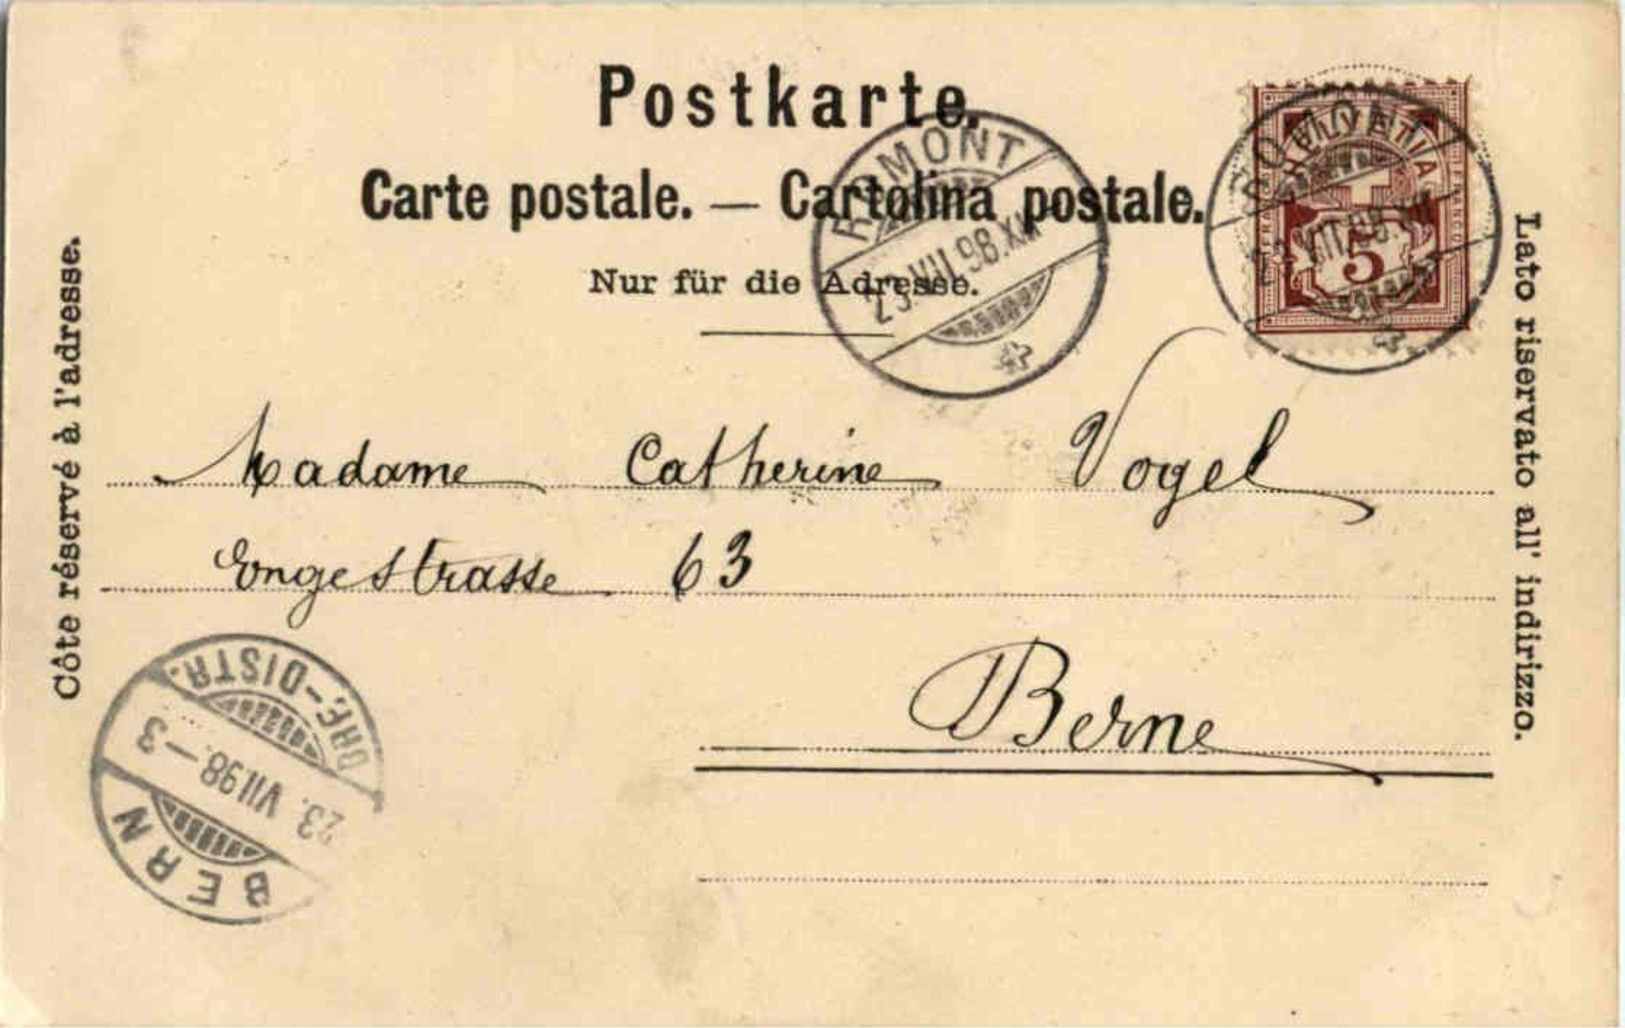 Postkarte.
Carte postale. — Cartolina postale.
Nur für die Adresse.
Côte réservé à l'adresse.
Lato riservato all' indirizzo.
ROMONT
23.VII.98.XII
HELVETIA
FRANCO
5
ROMONT
VII.98.XII
Madame Catherine Vogel
Engestrasse 63
Berne
BRF.-DISTR.
23. VII 98.—3
BERN